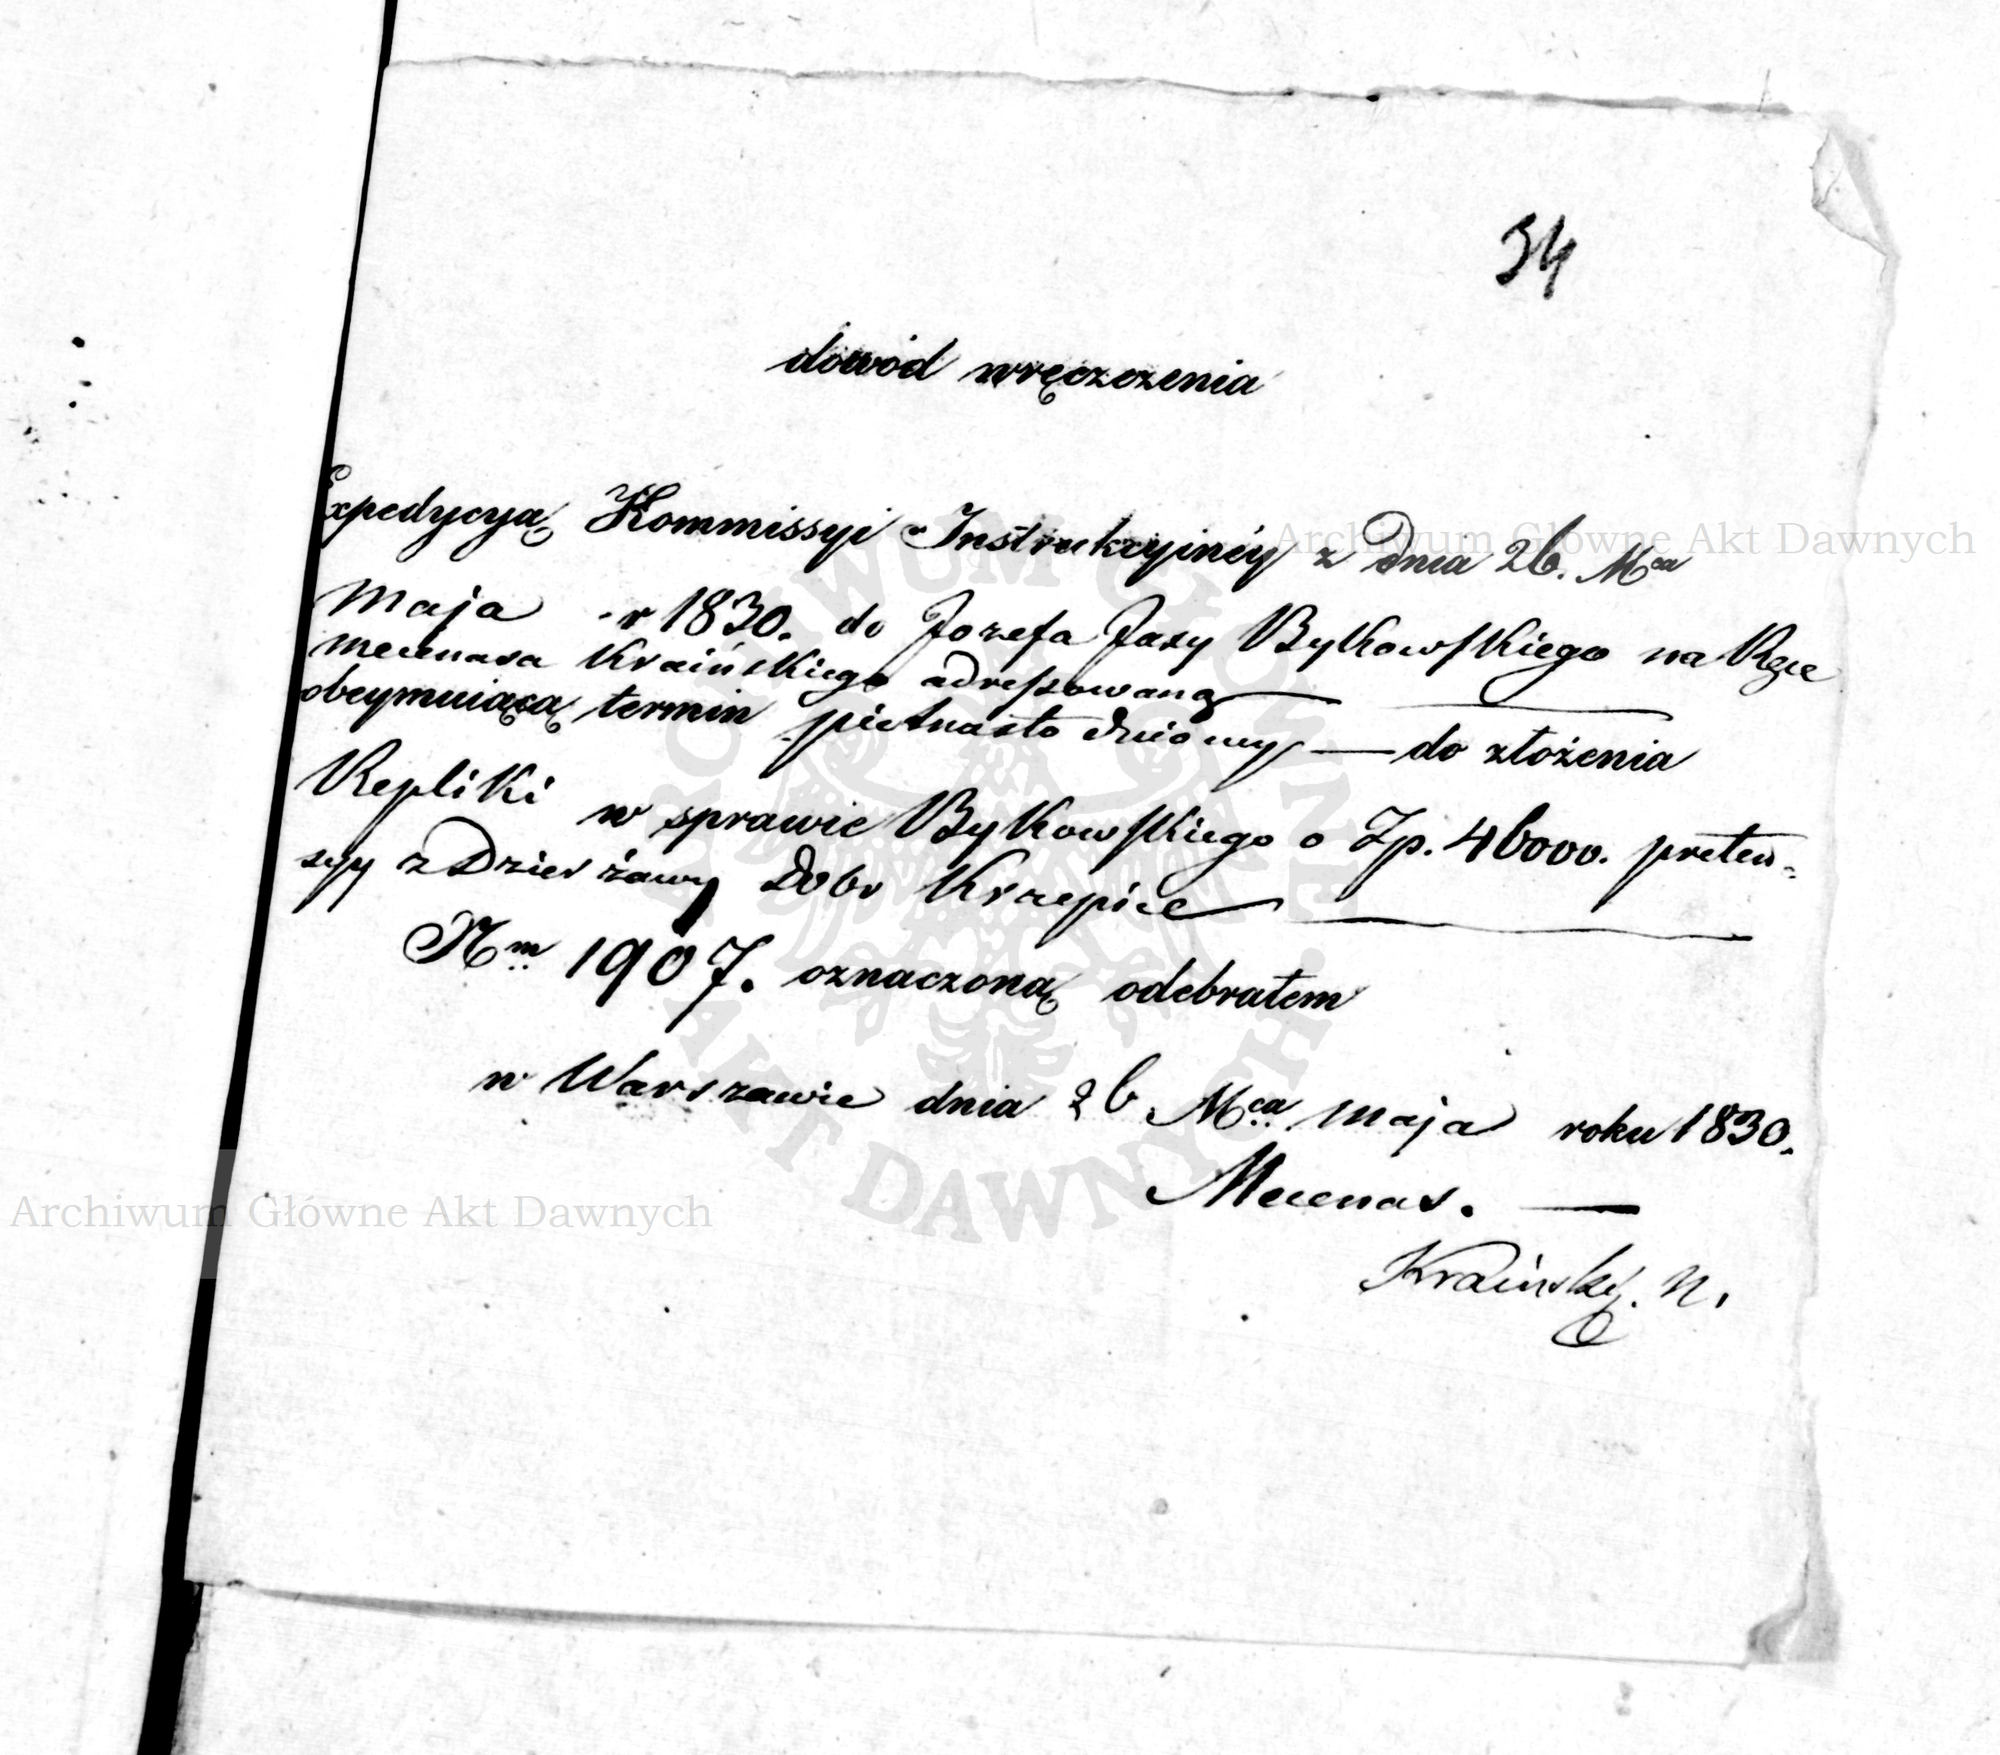 34
dowód wręczczenia
Expedycyą Kommissyi Instrukcyinéy z Dnia 26. Mca
Maja r 1830. do Jozefa Jaxy Bykowskiego na Ręce
Mecenasa Kraińskiego adressowaną
obeymuiącą termin pietnasto dniowy — do złożenia
Repliki w sprawie Bykowskiego o Zp. 46000. preten-
syy z Dzierżawy Dobr Krzepice
Nm 1907. oznaczoną odebrałem
w Warszawie dnia 26 Mca maja roku 1830.
Mecenas. —
Kraiński. N.
Archiwum Główne Akt Dawnych
Archiwum Główne Akt Dawnych
ARCHIWUM GŁÓWNE AKT DAWNYCH